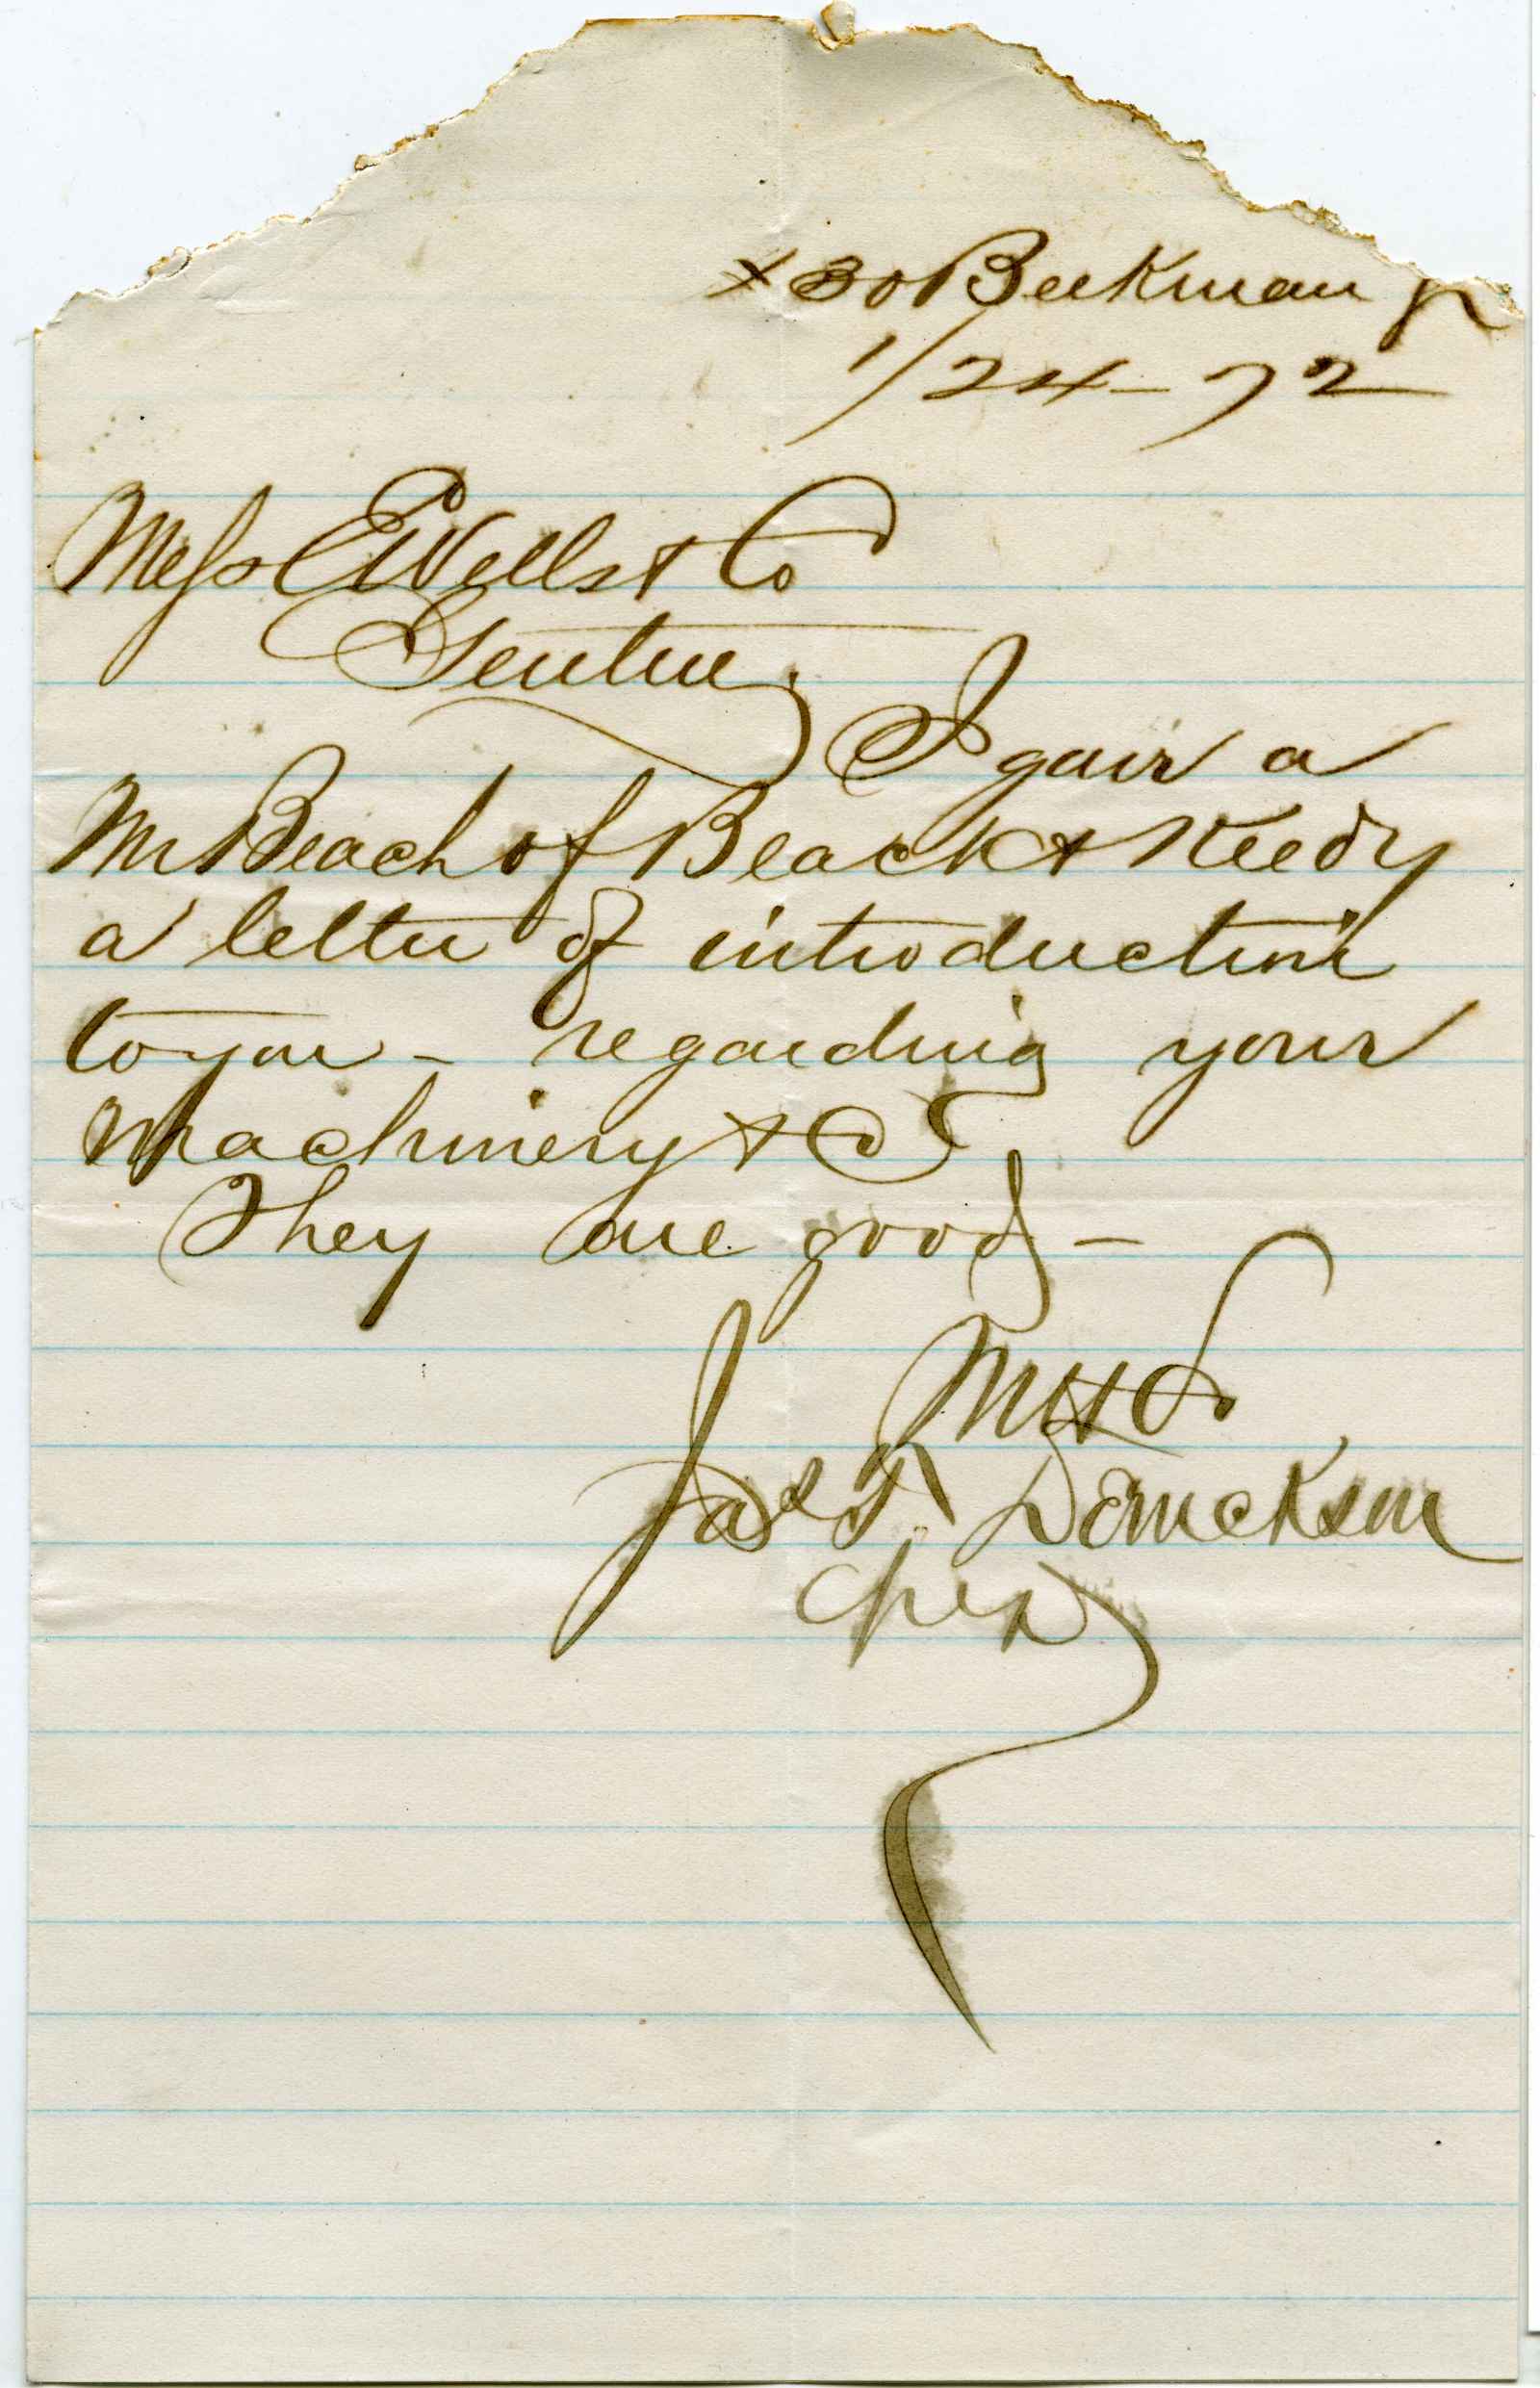 30 Beekman
1/24-72
Mess E Wells & Co
Gentm
I gave a
Mr Beach of Beach &
a letter of introduction
to you - regarding your
Machinery & C
They are good -
Jas T. Derrickson